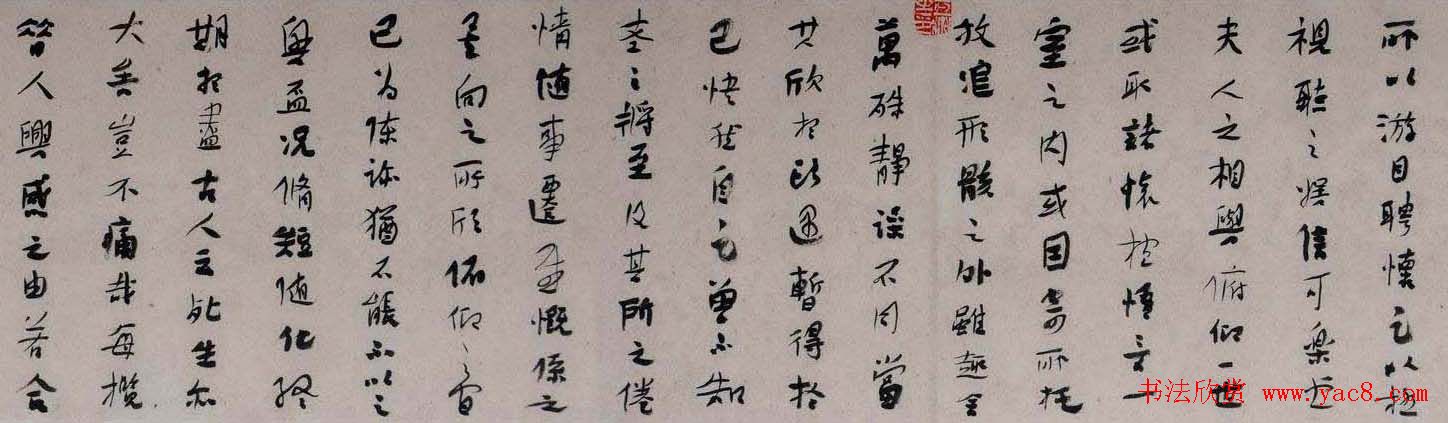 所以游目聘懷足以極
視聽之娛信可樂也
夫人之相與俯仰一世
或取諸懷抱悟言一
室之內或因寄所托
放浪形骸之外雖趣舍
萬殊靜躁不同當
其欣於所遇暫得於
己快然自足曾不知
老之將至及其所之倦
情隨事遷感慨係之
矣向之所欣俛仰之間
已為陳跡猶不能不以之
興盡況脩短隨化終
期於盡古人云死生亦
大矣豈不痛哉每攬
昔人興感之由若合
书法欣赏 www.yac8.com